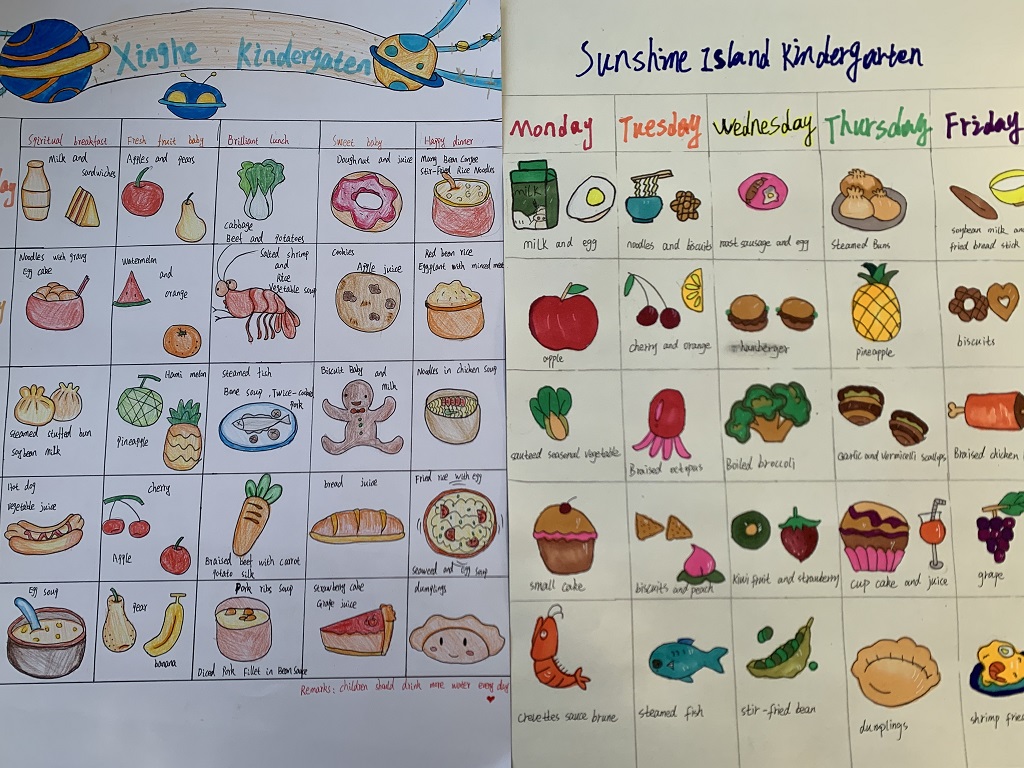 Xinghe Kindergaten
Spiritual breakfast
Fresh fruit baby
Brilliant lunch
Sweet baby
Happy dinner
day
milk and
sandwiches
Apples and pears
cabbage
Beef and potatoes
Doughnut and juice
Many Bean Congee
Stir-Fried Rice Noodles
y
Noodles with gravy
Egg cake
watermelon
and
orange
Salted shrimp
and
Rice
Vegetable soup
cookies
Apple juice
Red bean rice
Eggplant with minced meat
steamed stuffed bun
Soybean milk
Hami melon
pineapple
steamed fish
Bone soup , Twice-cooked
pork
Biscuit Baby and
milk
Noodles in chicken soup
Hot dog
vegetable juice
cherry
Apple
Braised beef with carrot
potato silk
bread juice
Fried rice with egg
Seaweed and Egg soup
Egg soup
pear
banana
Pork ribs soup
Diced Pork Fillet in Bean Sauce
strawberry cake
Grape juice
dumplings
Remarks: children should drink more water every day
Sunshine Island Kindergarten
Monday
Tuesday
Wednesday
Thursday
Friday
milk
milk and egg
noodles and biscuits
roast sausage and egg
Steamed Buns
soybean milk and
fried bread stick
apple
cherry and orange
hamberger
pineapple
biscuits
sauteed seasonal vegetable
Braised octopus
Boiled broccoli
Garlic and vermicelli scallops
Braised chicken
small cake
biscuits and peach
Kiwi fruit and strawberry
cup cake and juice
grape
Crevettes sauce brune
steamed fish
stir-fried bean
dumplings
shrimp fried